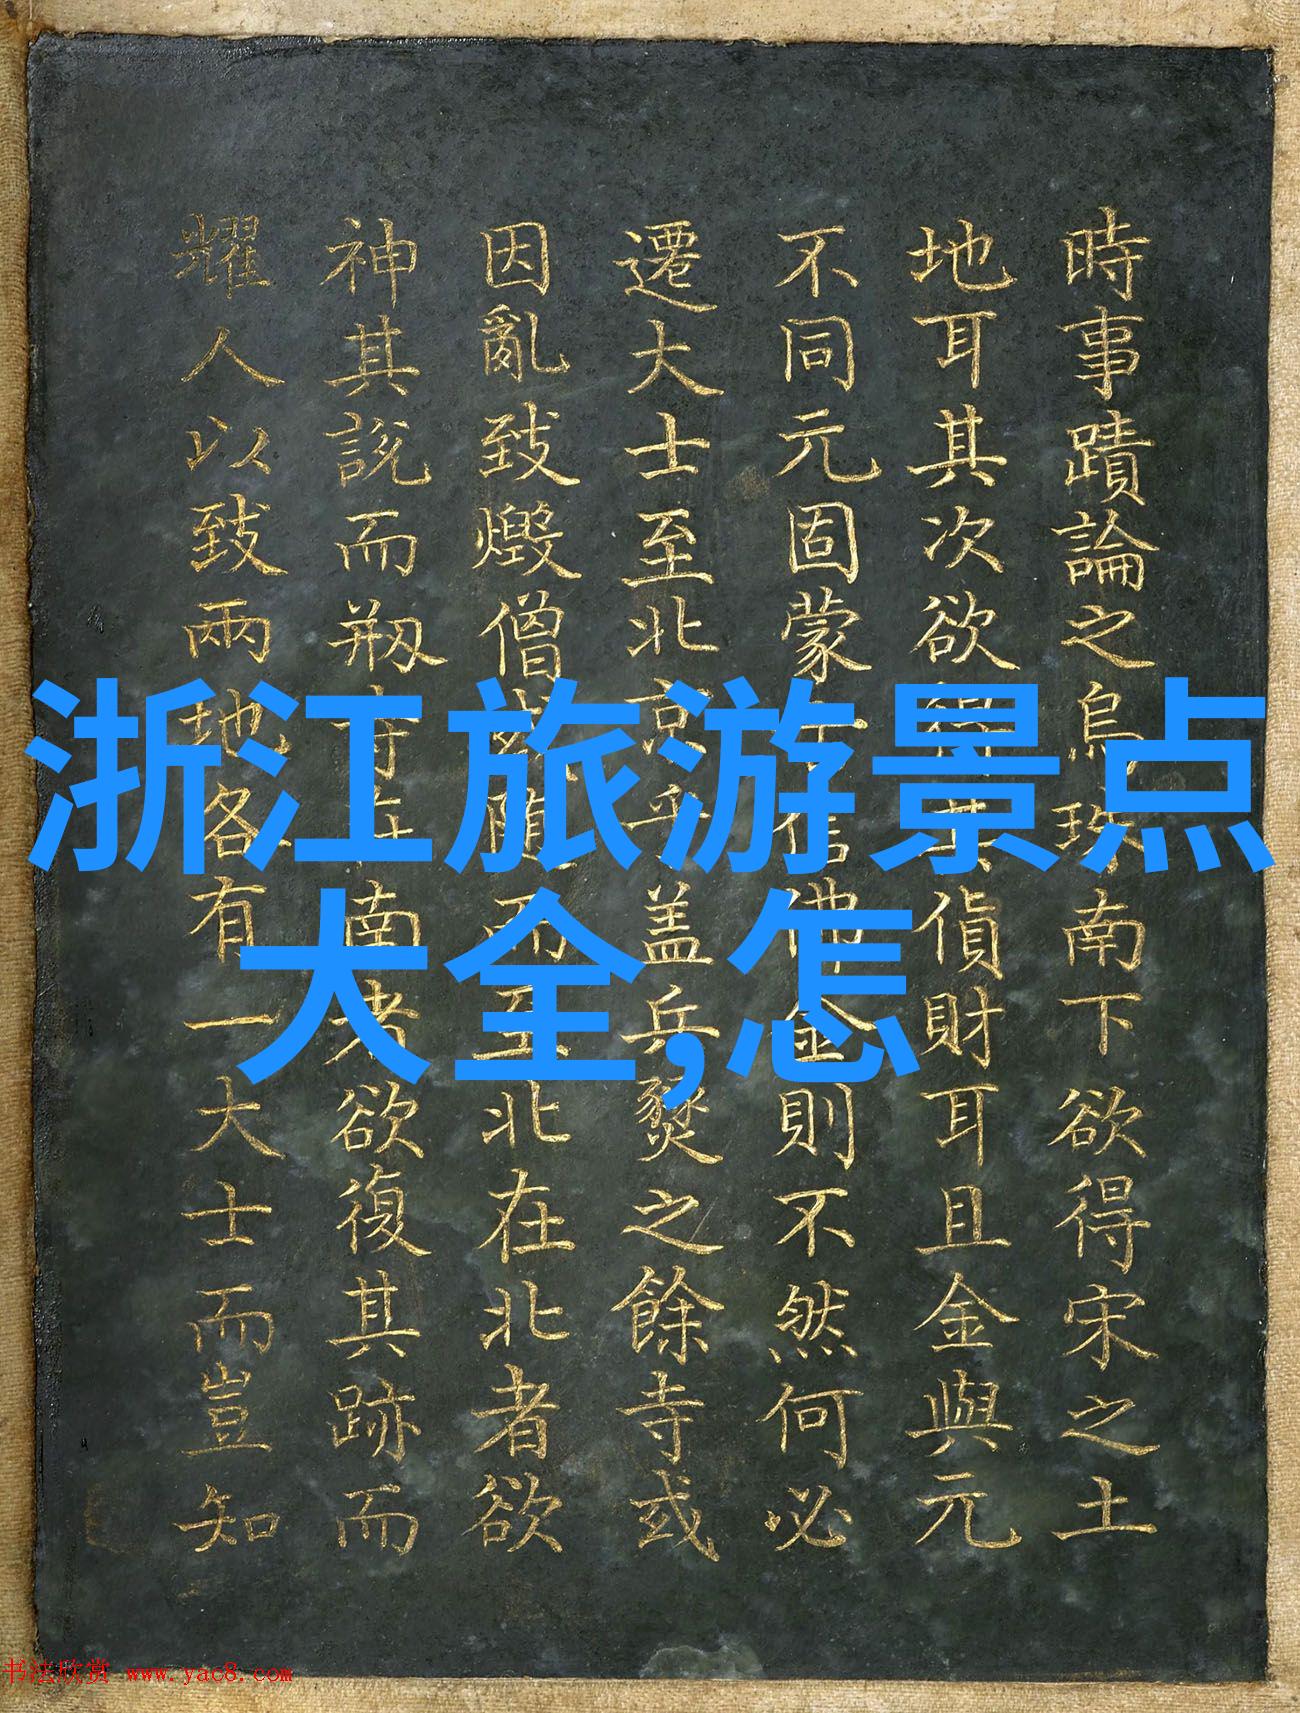 時事蹟論之烏珠南下欲得宋之土
地耳其次欲得其貨財耳且金與元
不同元固蒙古信佛金則不然何必
遷大士至北京乎盖兵燹之餘寺或
因亂致燬僧或隨而至北在北者欲
神其說而剏寺在南者欲復其跡而
耀人以致兩地各有一大士而豈知
浙江旅游景点
大全,怎
书法欣赏 www.yac8.com